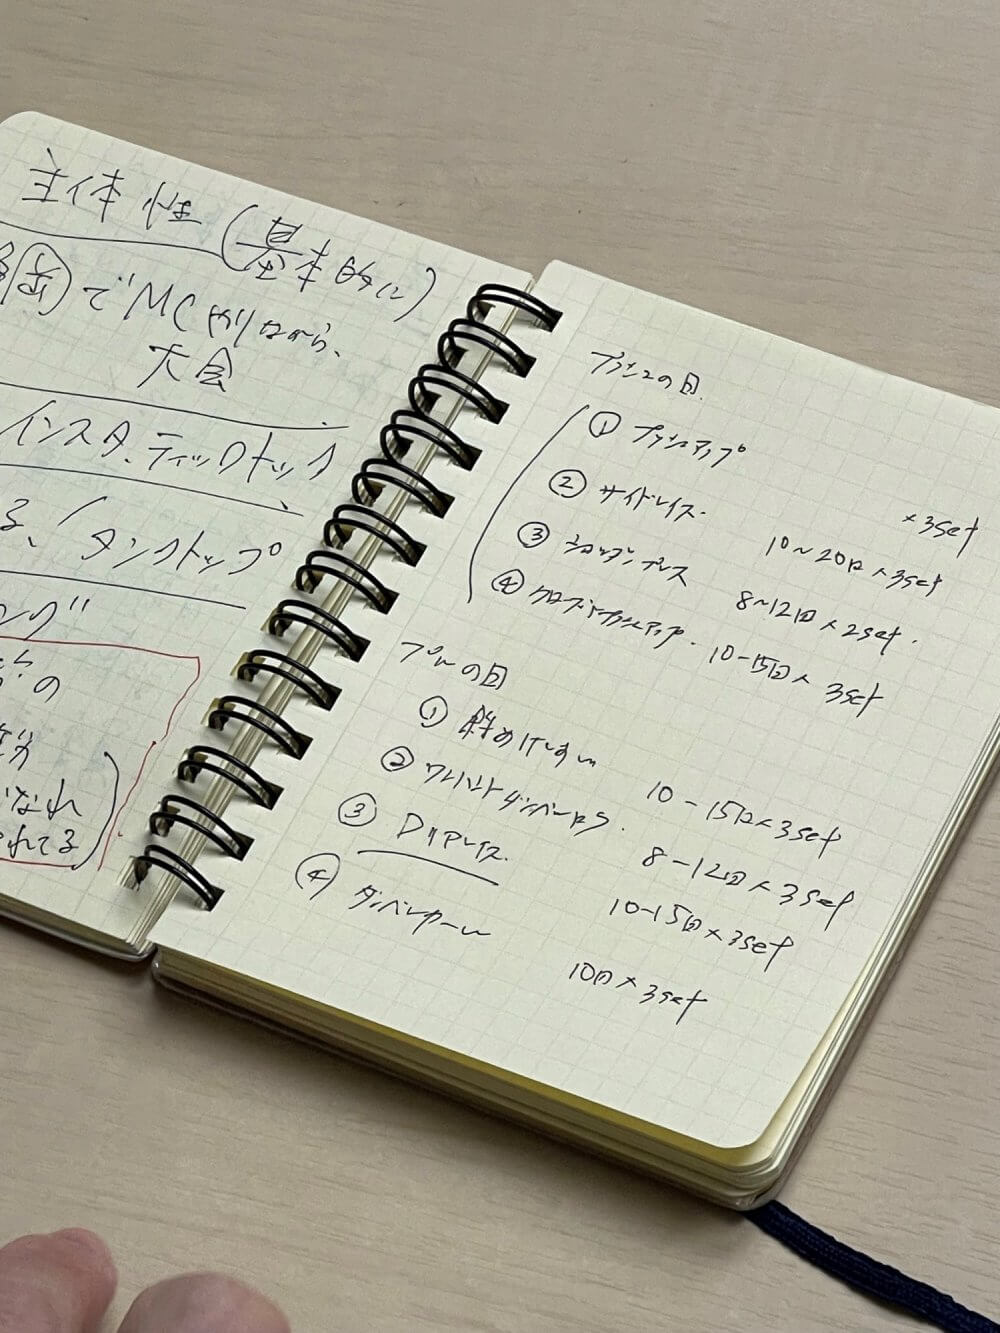 主体性(基本的に)
でMCやりながら、
大会
インスタ、ティックトック
る、/タンクトップ
ング
の
なれ
れてる
プッシュの日.
① プッシュアップ ×3set
② サイドレイズ. 10~20回×3set
③ ショルダープレス 8~12回×2set.
④ 10-15回× 3set
プルの日
① 斜めけんすい 10-15回×3set
② ワンハンドダンベルロウ. 8-12回×3set
③ Dリアレイズ. 10-15回×3set
④ ダンベルカール 10回×3set